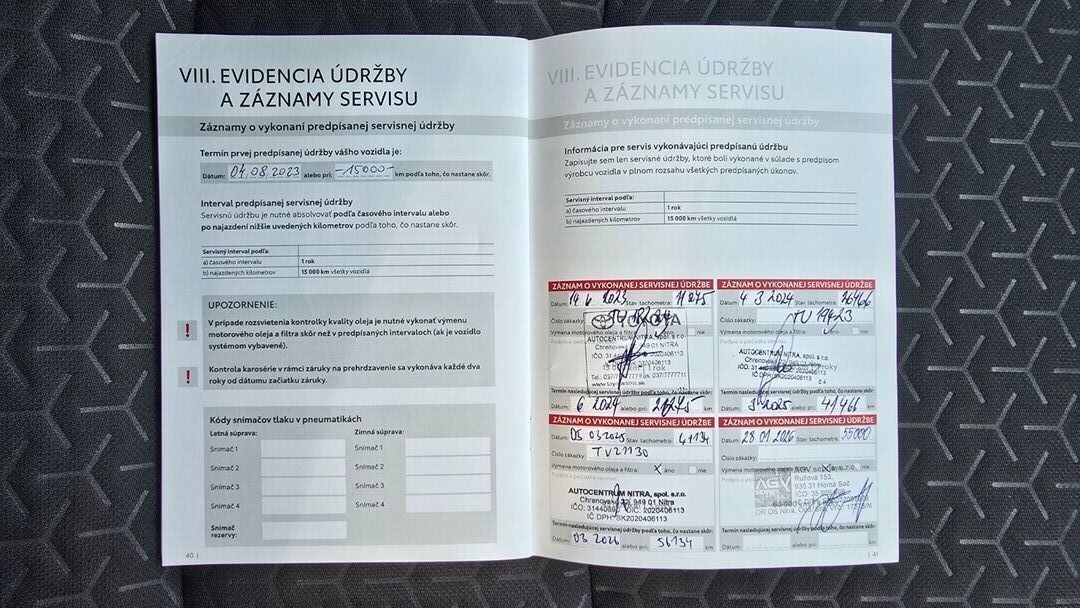 VIII. EVIDENCIA ÚDRŽBY
A ZÁZNAMY SERVISU
Záznamy o vykonaní predpísanej servisnej údržby
Termín prvej predpísanej údržby vášho vozidla je:
Dátum: 04.08.2023 alebo pri: -15000- km podľa toho, čo nastane skôr.
Interval predpísanej servisnej údržby
Servisnú údržbu je nutné absolvovať podľa časového intervalu alebo
po najazdení nižšie uvedených kilometrov podľa toho, čo nastane skôr.
Servisný interval podľa:
a) časového intervalu 1 rok
b) najazdených kilometrov 15 000 km všetky vozidlá
UPOZORNENIE:
! V prípade rozsvietenia kontrolky kvality oleja je nutné vykonať výmenu
motorového oleja a filtra skôr než v predpísaných intervaloch (ak je vozidlo
systémom vybavené).
! Kontrola karosérie v rámci záruky na prehrdzavenie sa vykonáva každé dva
roky od dátumu začiatku záruky.
Kódy snímačov tlaku v pneumatikách
Letná súprava: Zimná súprava:
Snímač 1 Snímač 1
Snímač 2 Snímač 2
Snímač 3 Snímač 3
Snímač 4 Snímač 4
Snímač
rezervy:
40 |
VIII. EVIDENCIA ÚDRŽBY
A ZÁZNAMY SERVISU
Záznamy o vykonaní predpísanej servisnej údržby
Informácia pre servis vykonávajúci predpísanú údržbu
Zapisujte sem len servisné údržby, ktoré boli vykonané v súlade s predpisom
výrobcu vozidla v plnom rozsahu všetkých predpísaných úkonov.
Servisný interval podľa:
a) časového intervalu 1 rok
b) najazdených kilometrov 15 000 km všetky vozidlá
ZÁZNAM O VYKONANEJ SERVISNEJ ÚDRŽBE
Dátum: 14 6 2023 Stav tachometra: 11275
Číslo zákazky:
Výmena motorového oleja a filtra: nie
TOYOTA
AUTOCENTRUM NITRA, spol. s r.o.
949 01 NITRA
1 rok
Termín nasledujúcej servisnej údržby podľa toho, čo nastane skôr:
Dátum: 6 2024 alebo pri: 26275 km
ZÁZNAM O VYKONANEJ SERVISNEJ ÚDRŽBE
Dátum: 4 3 2024 Stav tachometra: 26466
Číslo zákazky: TU
Výmena motorového oleja a filtra: nie
AUTOCENTRUM NITRA, spol. s r.o.
949 01 NITRA
IČ DPH: SK2020406113
Termín nasledujúcej servisnej údržby podľa toho, čo nastane skôr:
Dátum: 3 2025 alebo pri: 41466 km
ZÁZNAM O VYKONANEJ SERVISNEJ ÚDRŽBE
Dátum: 05 03 2025 Stav tachometra: 41134
Číslo zákazky: TV21130
Výmena motorového oleja a filtra: X áno nie
Podpis a pečiatka servisu:
AUTOCENTRUM NITRA, spol. s r.o.
Chrenovská 22, 949 01 Nitra
DIČ: 2020406113
IČ DPH: SK2020406113
Termín nasledujúcej servisnej údržby podľa toho, čo nastane skôr:
Dátum: 03 2026 alebo pri: 56134 km
ZÁZNAM O VYKONANEJ SERVISNEJ ÚDRŽBE
Dátum: 28 01 2026 Stav tachometra: 55000
Číslo zákazky:
Výmena motorového oleja
AGV
Ružová 153,
935 31 Horná Seč
OR OS Nitra,
Termín nasledujúcej servisnej údržby podľa toho, čo nastane skôr:
Dátum: alebo pri: km
| 41